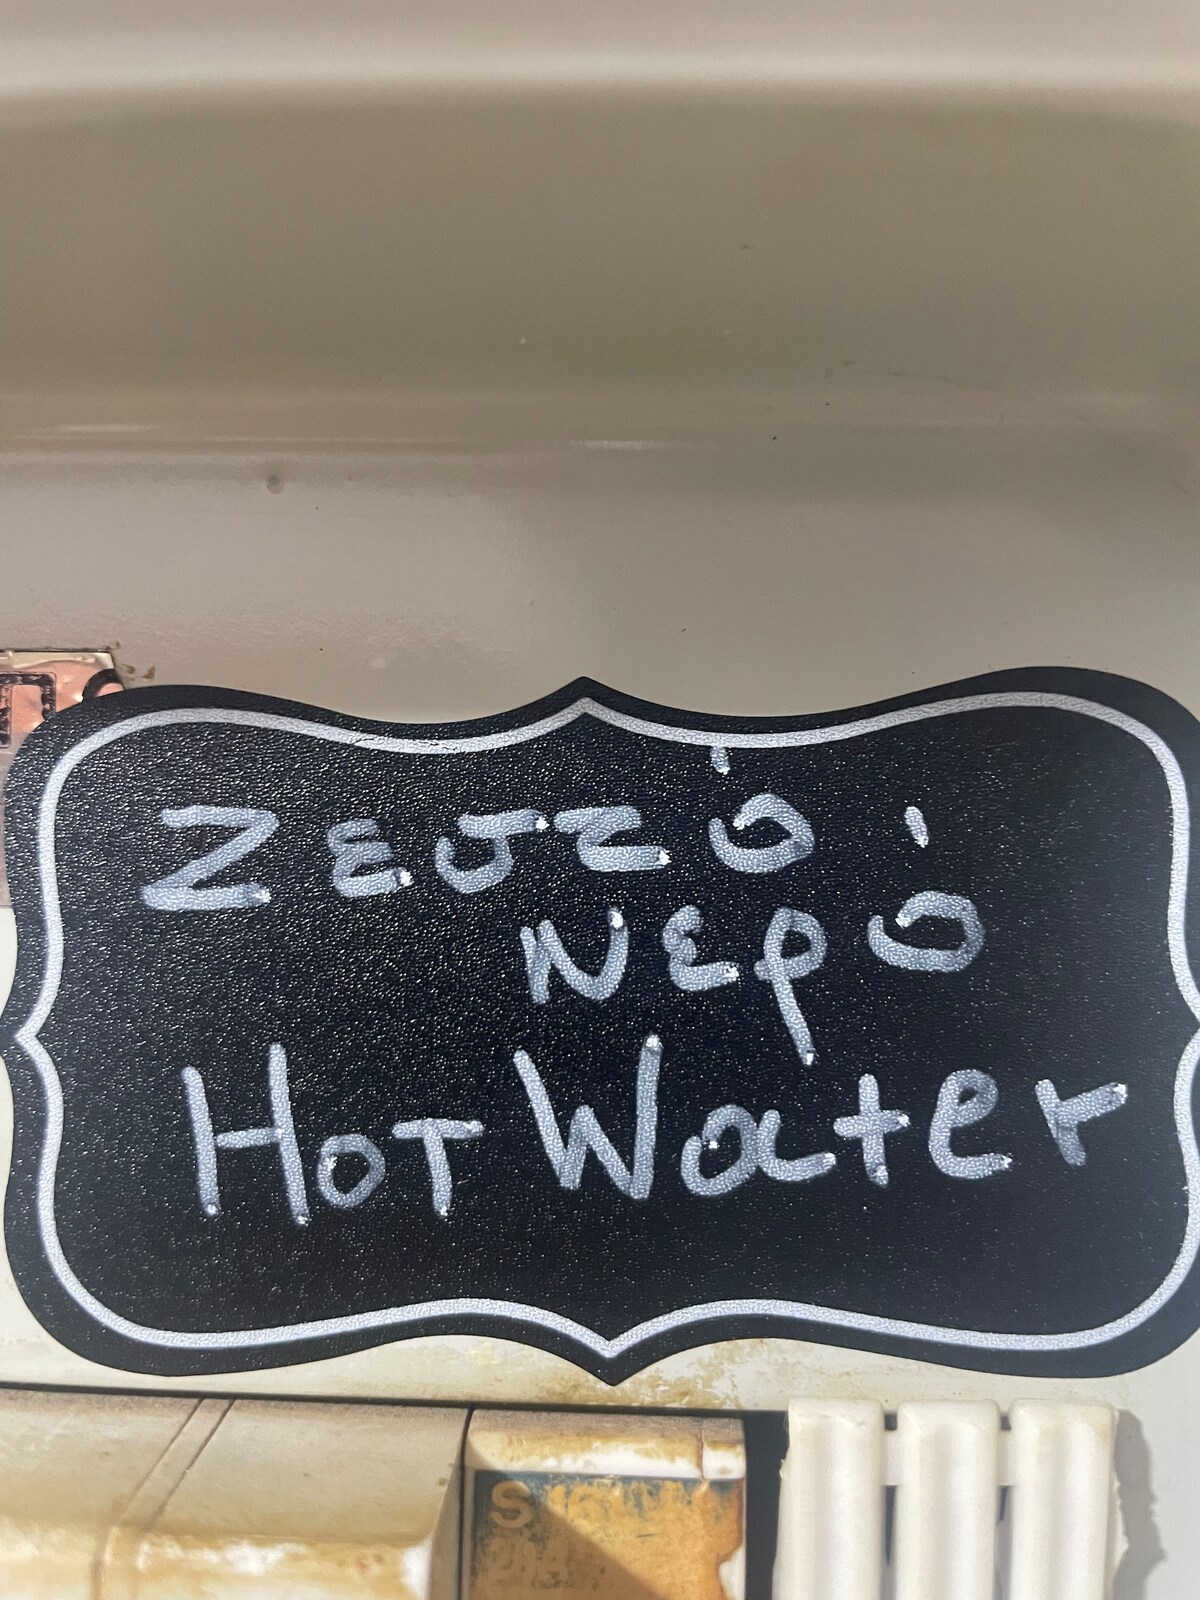 ΖΕσΤό
Νερό
HOT Water
S